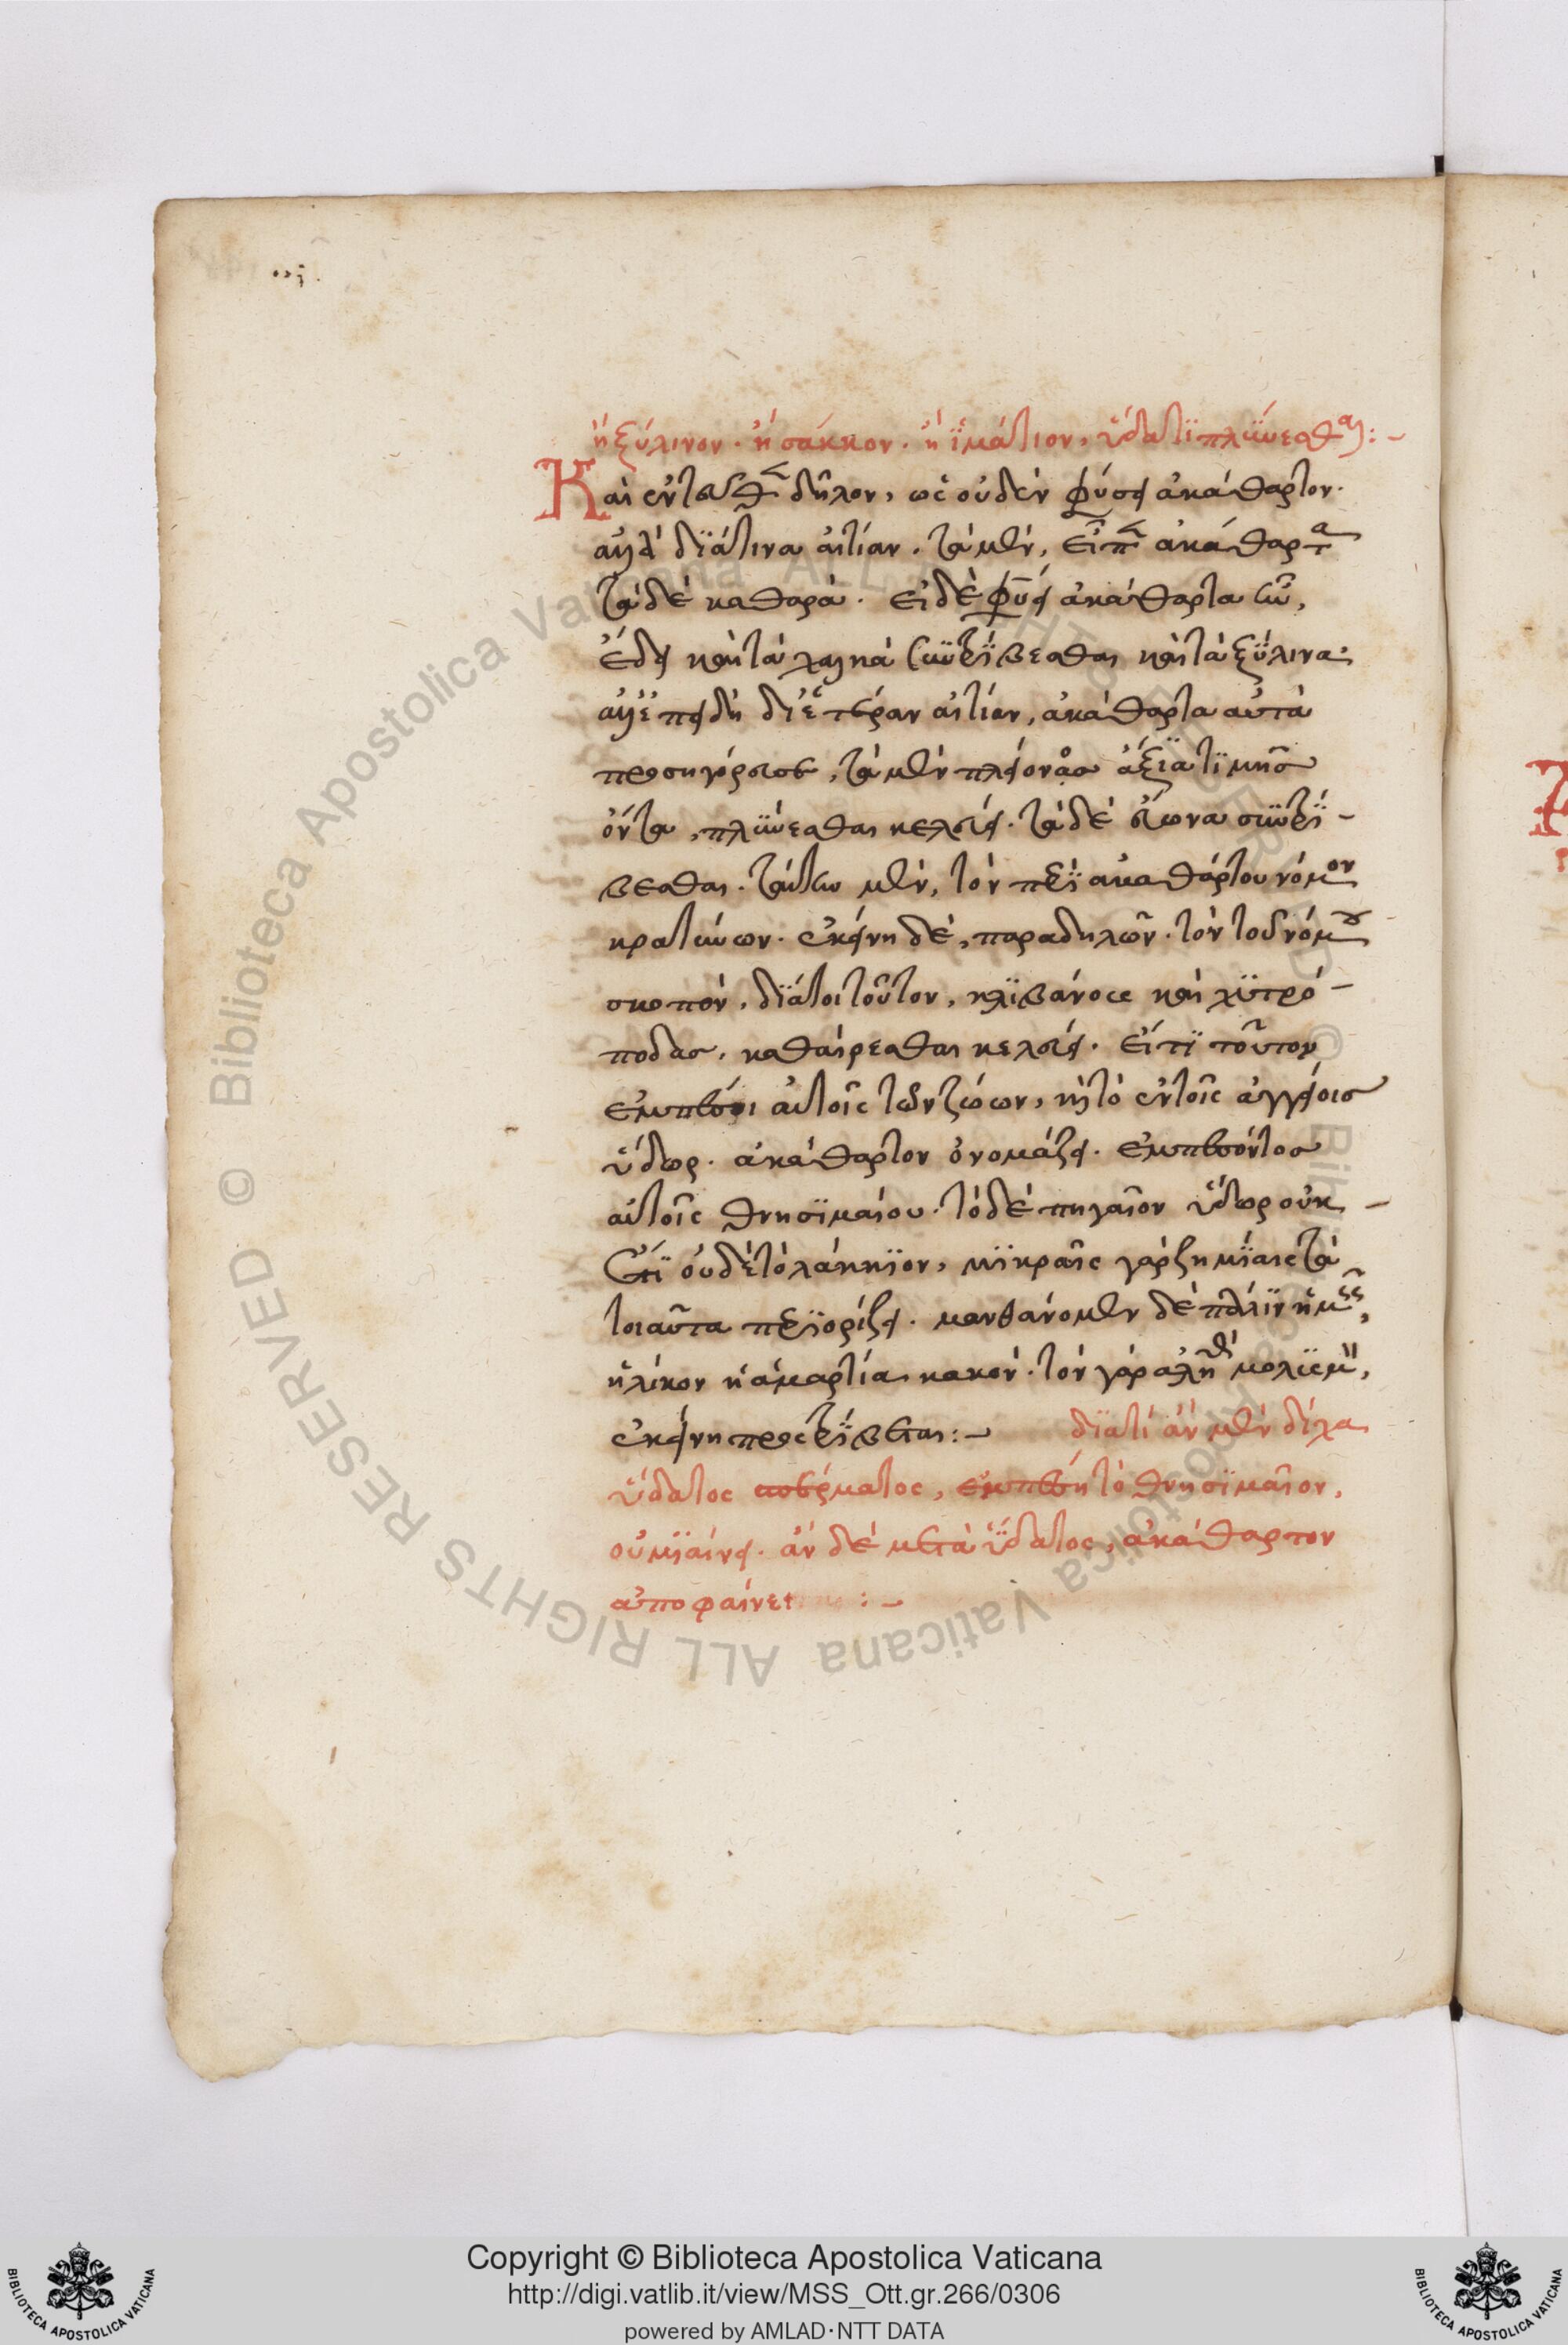 ἢ ξύλινον. ἢ σάκκον. ἢ ἱμάτιον, ὕδατϊ πλύνεσθαι:-
Καὶ ἐντεῦθεν δῆλον, ὡς οὐδὲν φύσει ἀκάθαρτον.
ἀλλὰ διά τινα αἰτίαν. τὰ μὲν, εἶπεν ἀκάθαρτα
τὰ δὲ καθαρά. εἰ δὲ φύσει ἀκάθαρτα ἦν,
ἔδει καὶ τὰ χαλκᾶ συντρίβεσθαι καὶ τὰ ξύλινα.
ἀλλ' ἐπειδὴ δι' ἑτέραν αἰτίαν, ἀκάθαρτα αὐτὰ
προσηγόρευσε, τὰ μὲν πλείονος ἄξια τιμῆς
ὄντα, πλύνεσθαι κελεύει. τὰ δὲ εὔωνα συντρί-
βεσθαι. ταύτῃ μὲν, τὸν περὶ ἀκαθάρτου νόμον
κρατύνων. ἐκείνη δὲ, παραδηλῶν. τὸν τοῦ νόμου
σκοπὸν, διά τοι τοῦτον, κλιβάνους καὶ χυτρό-
ποδας, καθαίρεσθαι κελεύει. εἴ τι τούτον
ἐμπέσοι αὐτοῖς τῶν ζώων, καὶ τὸ ἐν τοῖς ἀγγείοις
ὕδωρ. ἀκάθαρτον ὀνομάζει. ἐμπεσόντος
αὐτοῖς θνησιμαίου. τὸ δὲ πηγαῖον ὕδωρ οὐκ -
ἔτι οὐδὲ τὸ λάκκιον, μικραῖς γὰρ ζημίαις τὰ
τοιαῦτα περιορίζει. μανθάνομεν δὲ πάλιν ἡμεῖς,
ἡλίκον ἡ ἁμαρτία κακόν. τὸν γὰρ ἀληθῆ μολυσμὸν,
ἐκείνη προστρίβεται:- διατί ἂν μὲν δίχα
ὕδατος σπέρματος, ἐμπέσῃ τὸ θνησιμαῖον,
οὐ μιαίνει. ἂν δὲ μετὰ ὕδατος, ἀκάθαρτον
ἀποφαίνεται :-
Copyright © Biblioteca Apostolica Vaticana
http://digi.vatlib.it/view/MSS_Ott.gr.266/0306
powered by AMLAD·NTT DATA
© Biblioteca Apostolica Vaticana ALL RIGHTS RESERVED
BIBLIOTECA APOSTOLICA VATICANA
BIBLIOTECA APOSTOLICA VATICANA